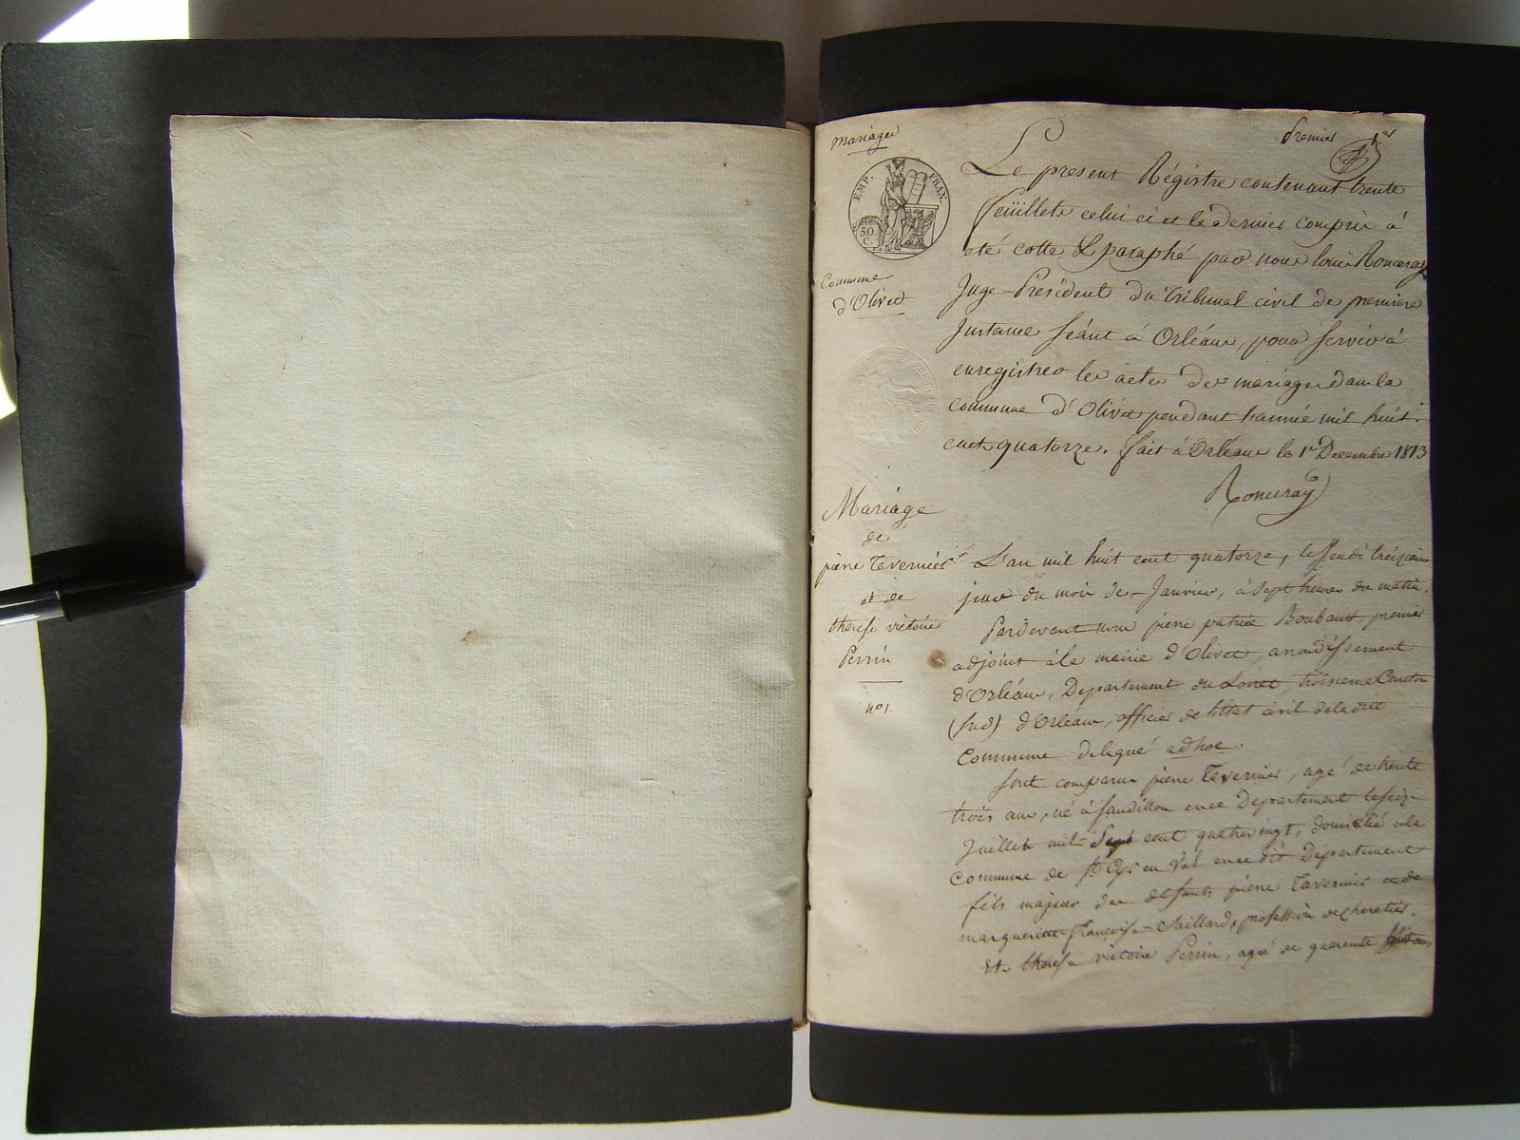 mariages
premier
EMP. FRAN.
50
C.
Le present Régistre contenant trente
feüillets celui ci et le dernier compris à
eté cotté & paraphé par nous louis Ronceray
Juge-Président du tribunal civil de premiere
Instance séant à Orléans, pour servir à
enregistrer les actes de mariages dans la
commune d'Olivet pendant l'année mil huit
cent quatorze. fait à Orléans le 1er Decembre 1813
Ronceray
Commune
d'Olivet
Mariage
de
pierre Tavernier
et de
therese victoire
Perrin
n° 1.
L'an mil huit cent quatorze, le Jeudi treizieme
jour du mois de Janvier, à sept heures du matin.
Pardevant nous pierre patrice Boubault premier
adjoint à la mairie d'Olivet, arrondissement
d'Orléans, Departement du Loiret, troisieme Canton
(sud) d'Orléans, officier de l'état civil de la dite
Commune delegué adhoc.
sont comparus pierre Tavernier, agé de trente
trois ans, né à sandillon en ce Departement le seize
Juillet mil sept cent quatre vingt, domicilié en la
Commune de St Cyr en Val en ce dit Departement
fils majeur des defunts pierre Tavernier et de
marguerite françoise Saillard, profession de charetier.
Et therese victoire Perrin, agé de quarente huit ans